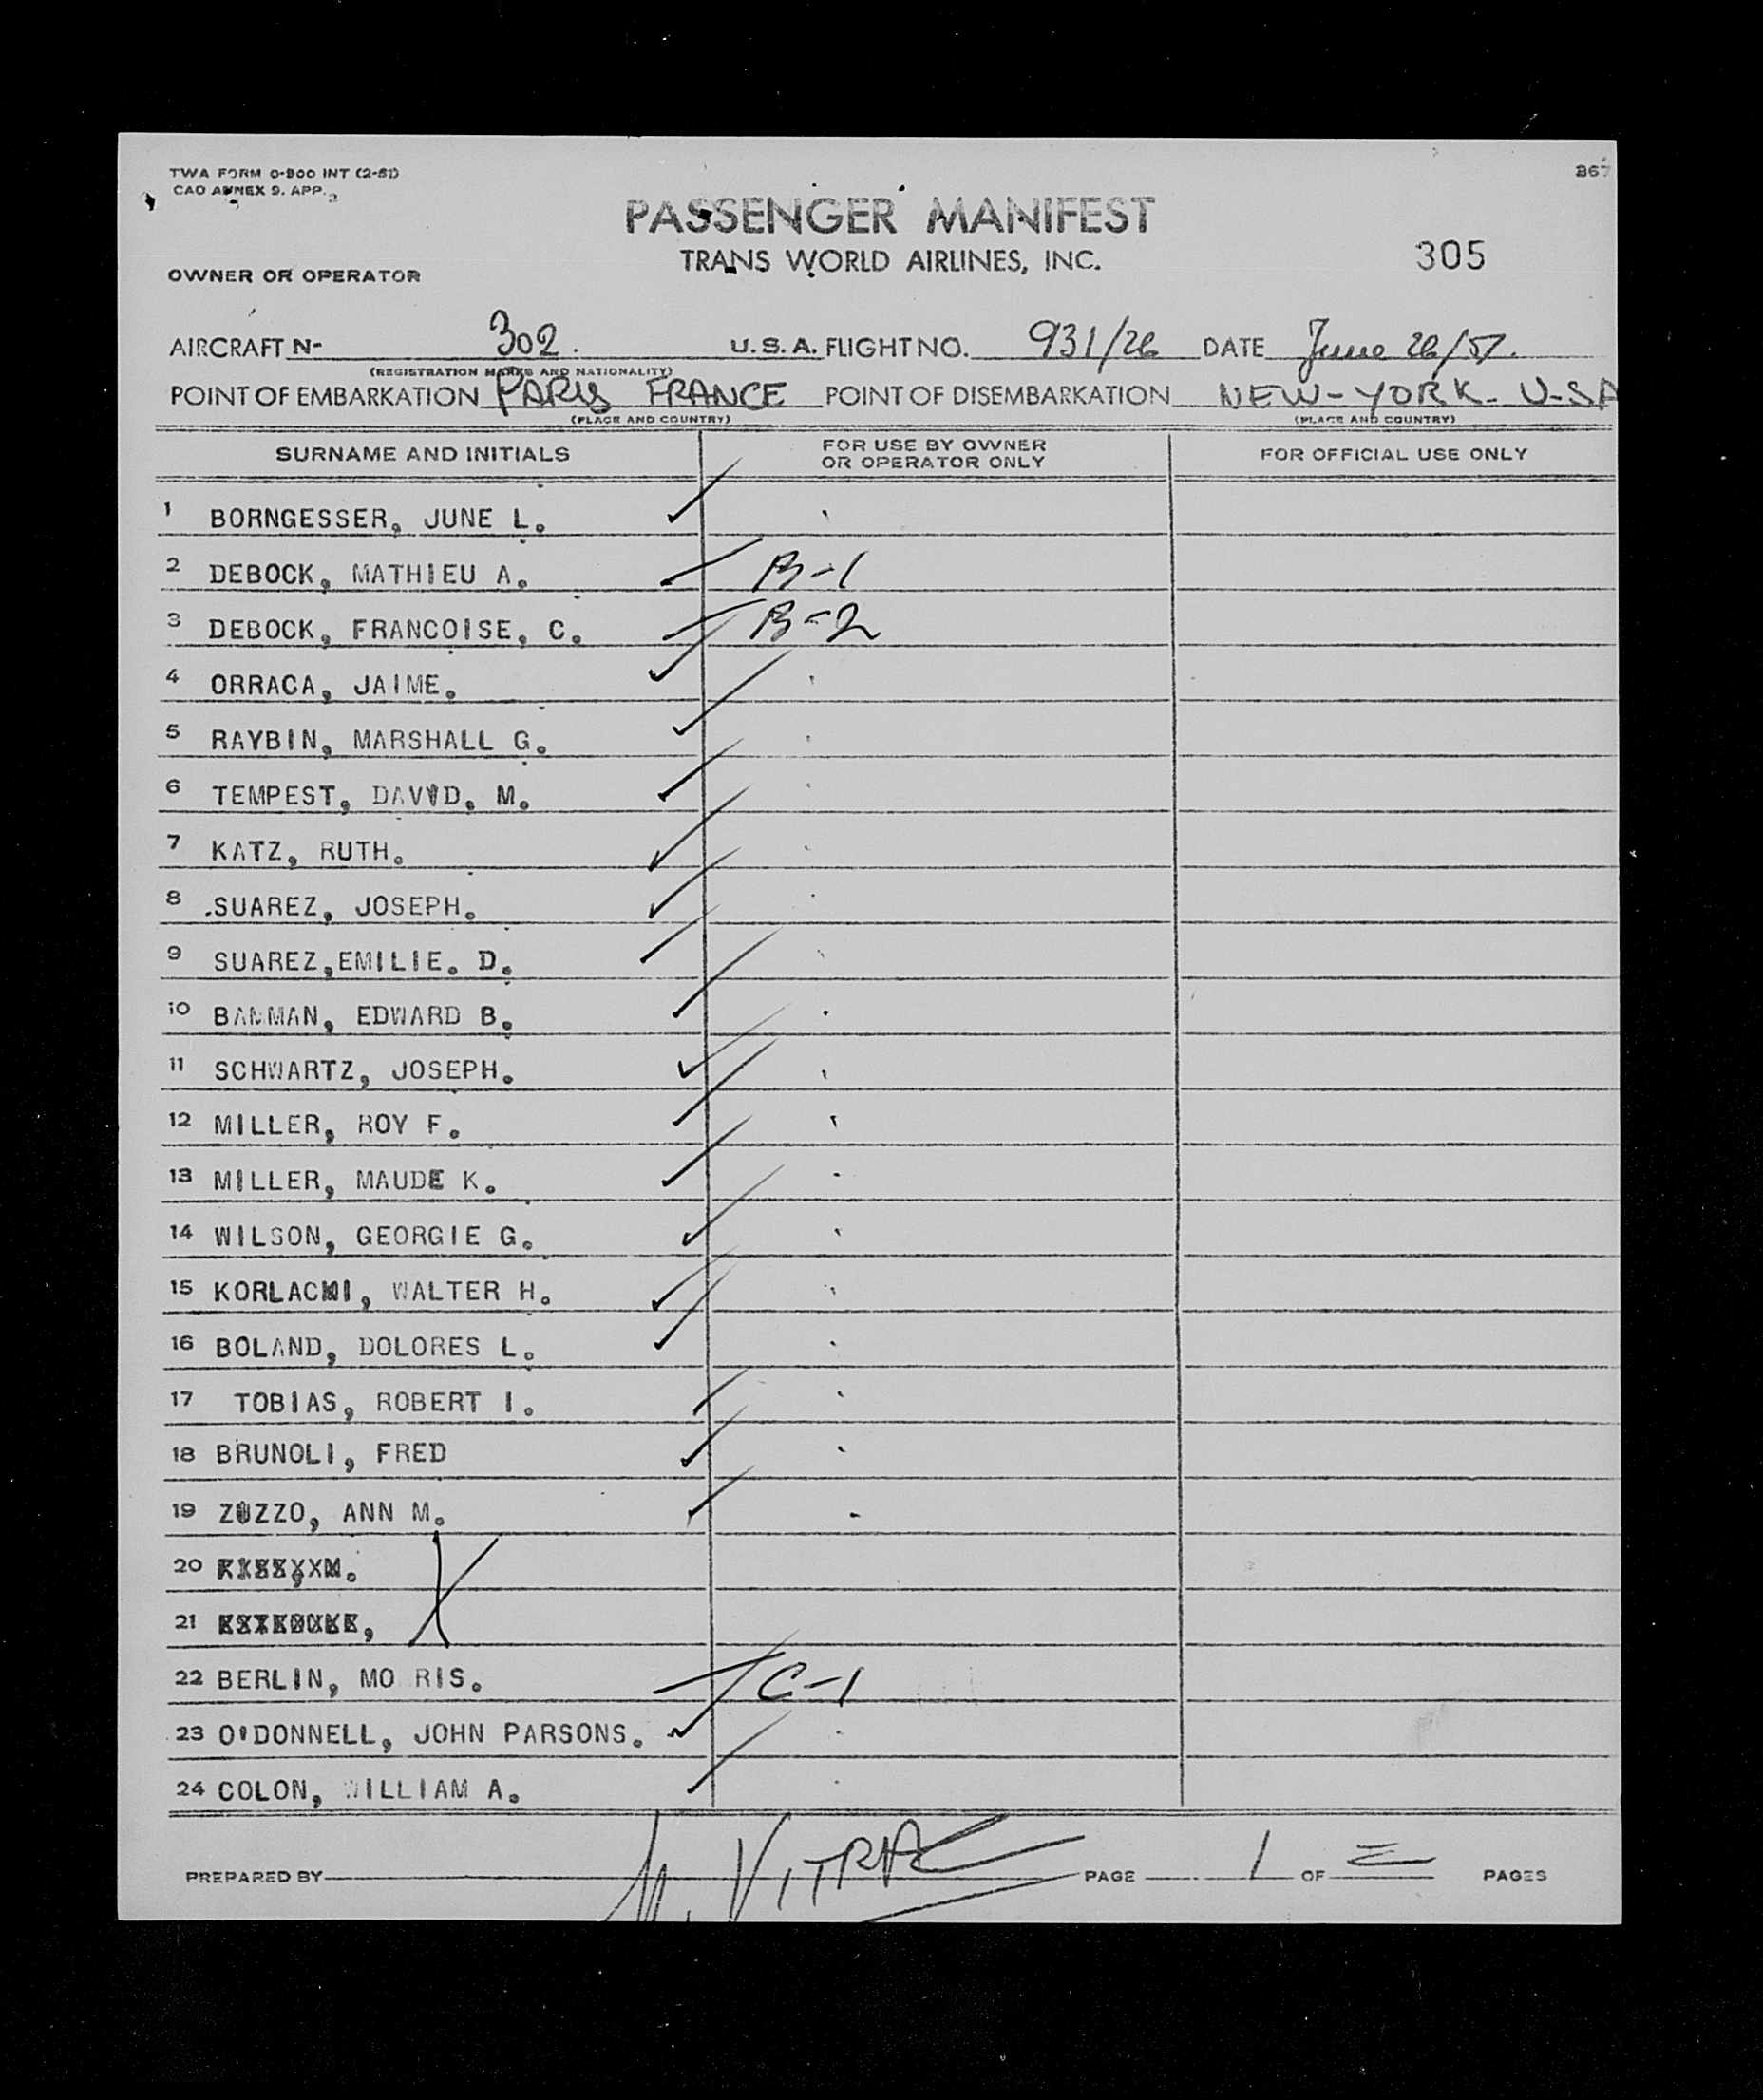 TWA FORM 0-900 INT (2-51)
CAO ANNEX 9. APP.
367
PASSENGER MANIFEST
TRANS WORLD AIRLINES, INC.
305
OWNER OR OPERATOR
AIRCRAFT N- 302. U.S.A. FLIGHT NO. 931/26 DATE June 26/51.
(REGISTRATION MARKS AND NATIONALITY)
POINT OF EMBARKATION PARIS FRANCE POINT OF DISEMBARKATION NEW-YORK- U-SA
(PLACE AND COUNTRY) (PLACE AND COUNTRY)
SURNAME AND INITIALS FOR USE BY OWNER OR OPERATOR ONLY FOR OFFICIAL USE ONLY
1 BORNGESSER, JUNE L.
2 DEBOCK, MATHIEU A. B-1
3 DEBOCK, FRANCOISE, C. B-2
4 ORRACA, JAIME.
5 RAYBIN, MARSHALL G.
6 TEMPEST, DAVID, M.
7 KATZ, RUTH.
8 SUAREZ, JOSEPH.
9 SUAREZ,EMILIE. D.
10 BANMAN, EDWARD B.
11 SCHWARTZ, JOSEPH.
12 MILLER, ROY F.
13 MILLER, MAUDE K.
14 WILSON, GEORGIE G.
15 KORLACKI, WALTER H.
16 BOLAND, DOLORES L.
17 TOBIAS, ROBERT I.
18 BRUNOLI, FRED
19 ZUZZO, ANN M.
20
21
22 BERLIN, MO RIS. C-1
23 O'DONNELL, JOHN PARSONS.
24 COLON, WILLIAM A.
PREPARED BY PAGE 1 OF PAGES